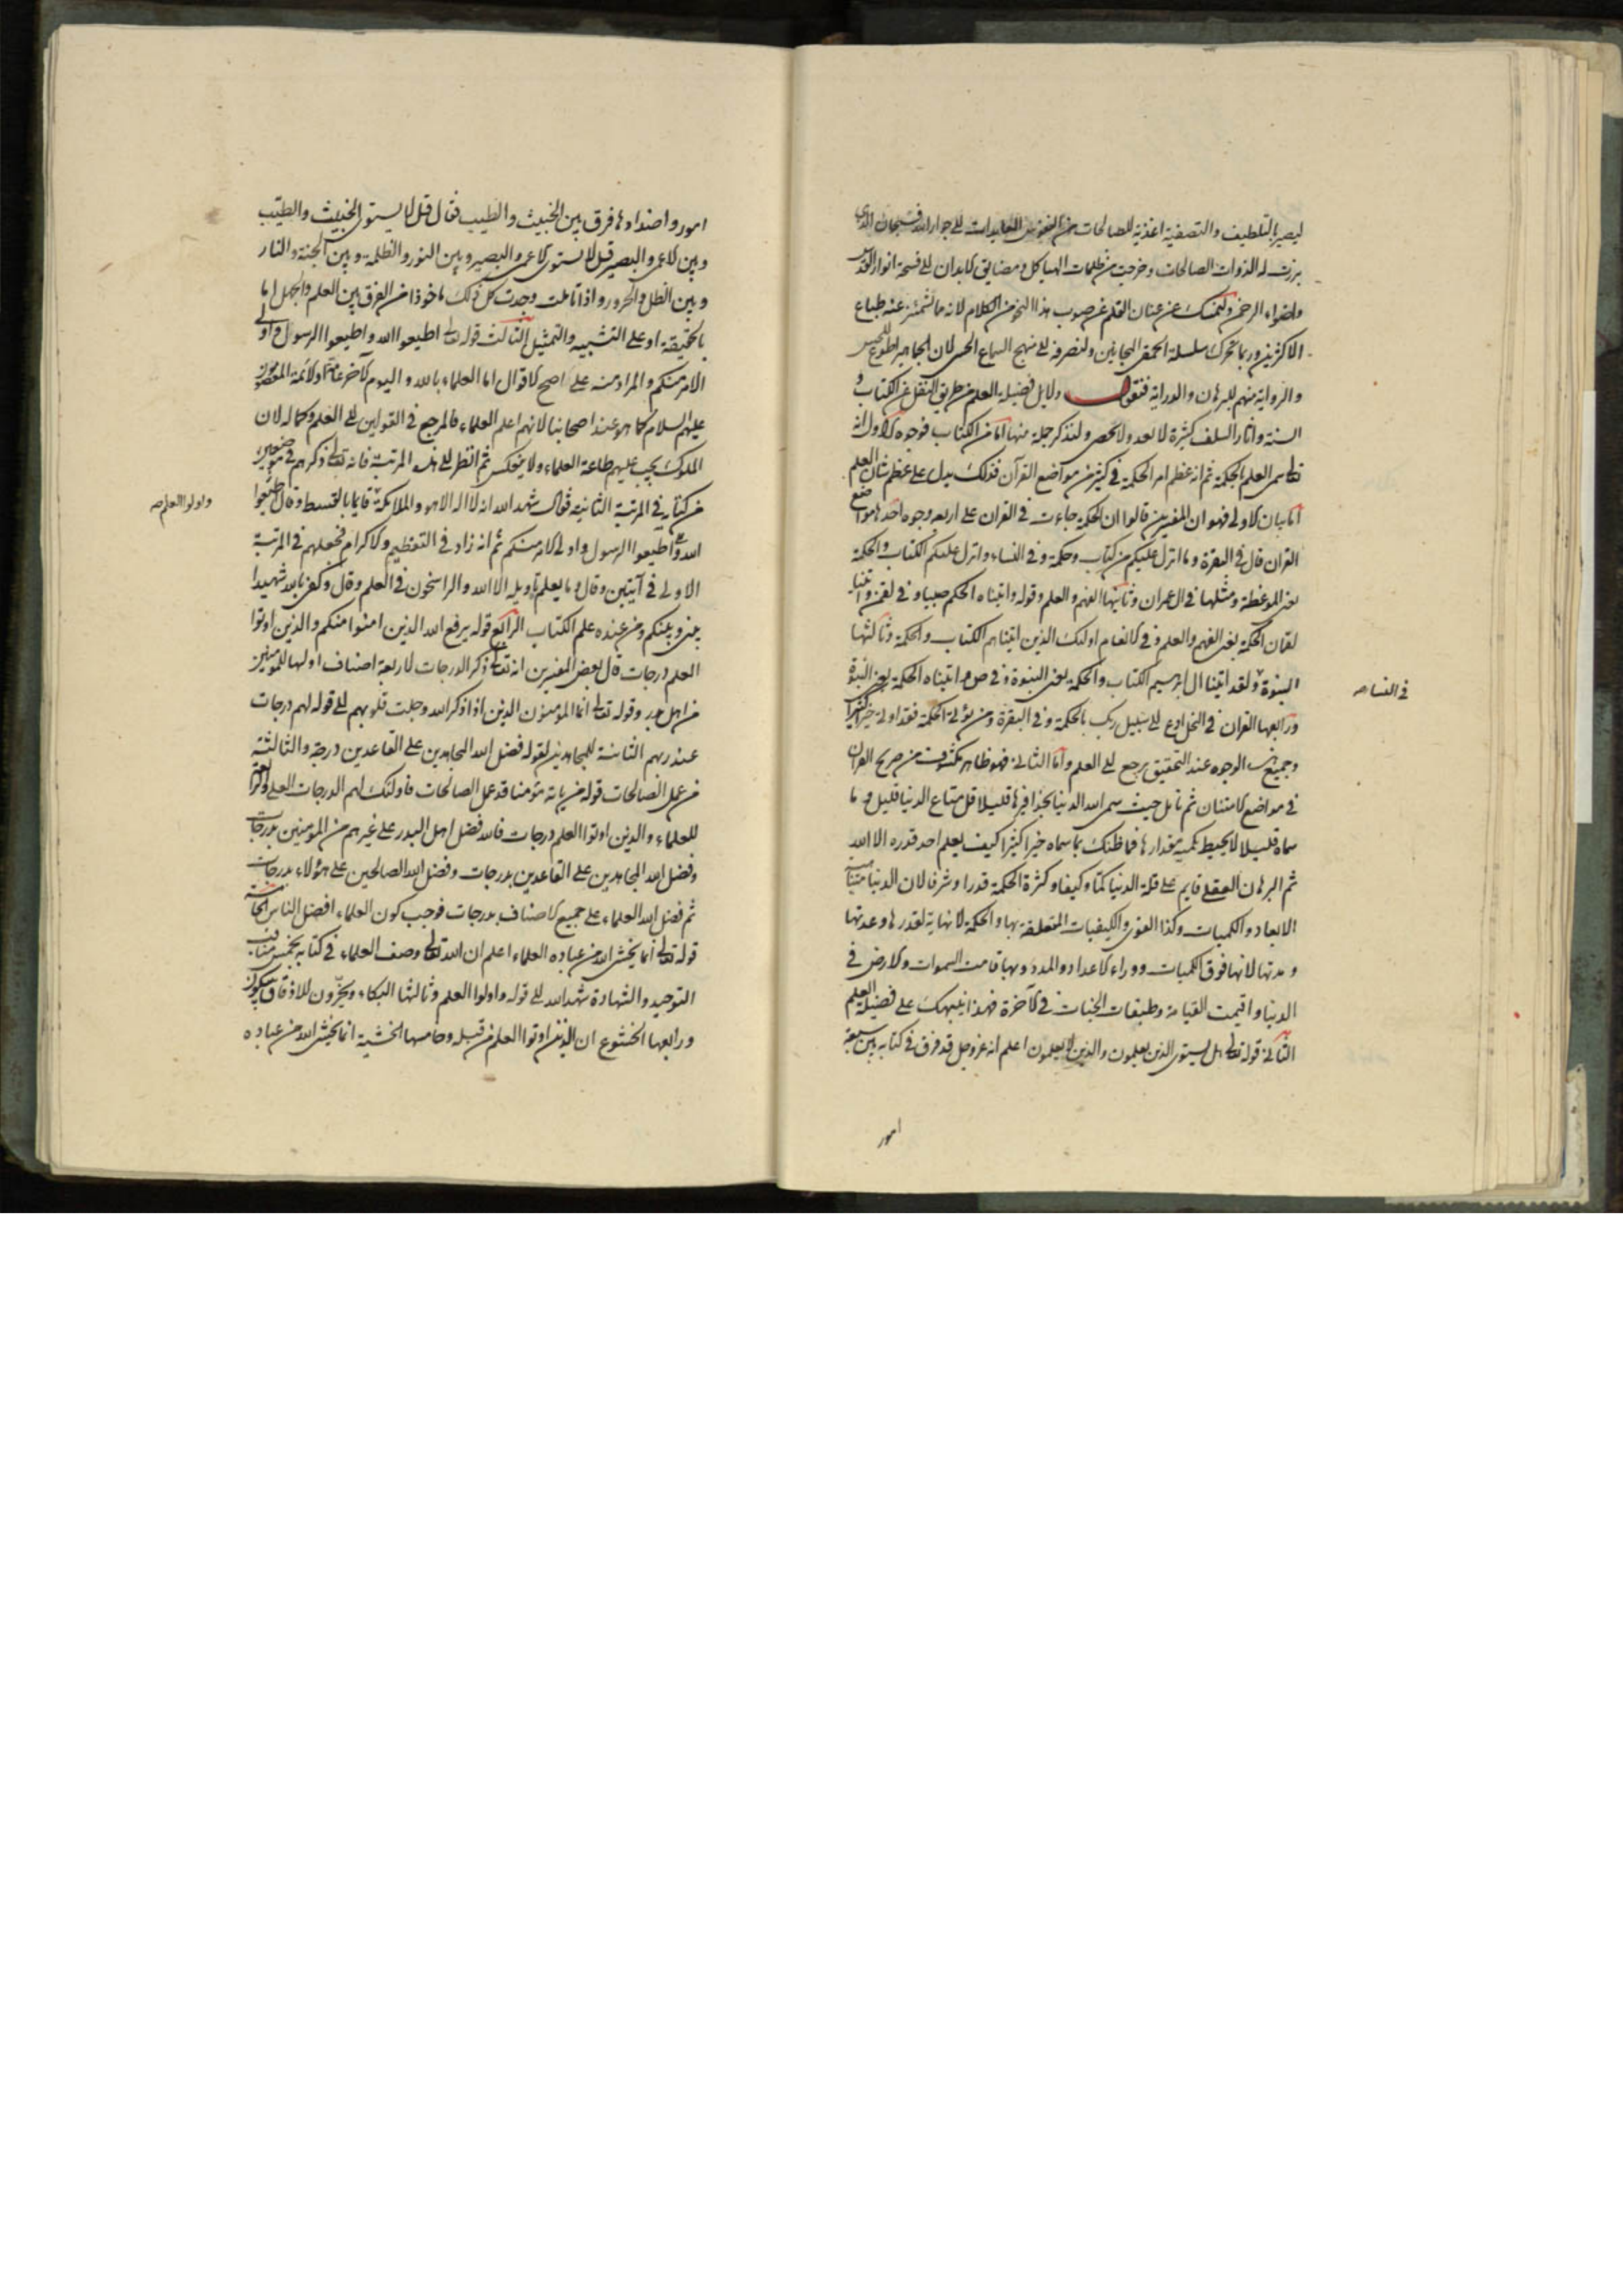 ليصير بالتلطيف والتصفية اغذية للصالحات من النفوس العابدات الى جوار الله فسبحان الذى
برزت له الذوات الصالحات وخرجت من ظلمات الهياكل ومضايق الابدان الى فسحة انوار القدس
واضواء الرحمن ولنمسك عن عنان القلم عن صوب هذا النحو من الكلام لانه مما تشمئز عنه طباع
الاكثرين وربما تحرك سلسلة الحمقى المجانين ولنصرفه الى منهج السماع الحسى لان الجماهير اطوع للحس
والرواية منهم للبرهان والدراية فنقول دلايل فضيلة العلم من طريق النقل عن الكتاب و
السنة واثار السلف كثيرة لا تعد ولا تحصى ولنذكر جملة منها اما من الكتاب فوجوه الاول انه
تعالى سمى العلم بالحكمة ثم انه عظم امر الحكمة فى كثير من مواضع القرآن فذلك يدل على عظم شان العلم
اما بيان الاولى فهو ان المفسرين قالوا ان الحكمة جاءت فى القران على اربعه وجوه احدها مواضع
القران قال فى البقرة وما انزل عليكم من كتاب وحكمة وفى النساء وانزل عليكم الكتاب والحكمة
يعنى الموعظة ومثلها فى ال عمران وثانيها الفهم والعلم وقوله واتيناه الحكم صبيا وفى لقمن واتينا
لقمان الحكمة يعنى الفهم والعلم وفى الانعام اولئك الذين اتيناهم الكتاب والحكمة وثالثها
النبوة ولقد اتينا ال ابرهيم الكتاب والحكمة يعنى النبوة وفى ص واتيناه الحكمة يعنى النبوة
فى النساء صح
ورابعها القران فى النحل ادع الى سبيل ربك بالحكمة وفى البقرة ومن يؤتى الحكمة فقد اوتى خيرا كثيرا
وجميع هذه الوجوه عند التحقيق يرجع الى العلم واما الثانى فهو ظاهر مكشوف من صريح القران
فى مواضع الامتنان ثم تامل حيث سمى الله الدنيا بحذافيرها قليلا قل متاع الدنيا قليل وما
سماه قليلا لا يحيط بكمية مقدارها فما ظنك بما سماه خيرا كثيرا كيف يعلم احد قدره الا الله
ثم البرهان العقلى قايم على قلة الدنيا كما وكيفا وكثرة الحكمة قدرا وشرفا لان الدنيا متناهية
الابعاد والكميات وكذا القوى والكيفيات المتعلقة بها والحكمة لا نهاية لقدرها وعدتها
ومدتها لانها فوق الكميات ووراء الاعداد والمدد وبها قامت السموات والارض فى
الدنيا واقيمت القيامة وطبقات الجنات فى الآخرة فهذا ينبهك على فضيلة العلم
الثانى قوله تعالى هل يستوى الذين يعلمون والذين لا يعلمون اعلم انه عز وجل قد فرق فى كتابه بين سبعة
امور
امور واضدادها فرق بين الخبيث والطيب فقال قل لا يستوى الخبيث والطيب
وبين الاعمى والبصير قل لا يستوى الاعمى والبصير وبين النور والظلمة وبين الجنة والنار
وبين الظل والحرور واذا تاملت وجدت كل ذلك ماخوذا من الفرق بين العلم والجهل اما
بالحقيقة او على التشبيه والتمثيل الثالث قوله تعالى اطيعوا الله واطيعوا الرسول واولى
الامر منكم والمراد منه على اصح الاقوال اما العلماء بالله واليوم الآخر عامة او الائمة المعصومين
عليهم السلام كما هو عند اصحابنا لانهم اعلم العلماء فالمرجع فى القولين الى العلم وكماله لان
الملوك يجب عليهم طاعة العلماء ولا ينعكس ثم انظر الى هذه المرتبة فانه تعالى ذكرهم فى موضعين
من كتابه فى المرتبة الثانية فقال شهد الله انه لا اله الا هو والملائكة قايما بالقسط وقال اطيعوا
واولوا العلم صح
الله واطيعوا الرسول واولى الامر منكم ثم انه زاد فى التعظيم والاكرام فجعلهم فى المرتبة
الاولى فى آيتين وقال وما يعلم تاويله الا الله والراسخون فى العلم وقال وكفى بالله شهيدا
بينى وبينكم ومن عنده علم الكتاب الرابع قوله يرفع الله الذين امنوا منكم والذين اوتوا
العلم درجات قال بعض المفسرين انه تعالى ذكر الدرجات لاربعة اصناف اولها للمومنين
من اهل بدر وقوله تعالى انما المؤمنون الذين اذا ذكر الله وجلت قلوبهم الى قوله لهم درجات
عند ربهم الثانية للمجاهدين لقوله فضل الله المجاهدين على القاعدين درجة والثالثة
من عمل الصالحات قوله من ياته مؤمنا قد عمل الصالحات فاولئك لهم الدرجات العلى والرابعة
للعلماء والذين اوتوا العلم درجات فالله فضل اهل البدر على غيرهم من المؤمنين بدرجات
وفضل الله المجاهدين على القاعدين بدرجات وفضل الله الصالحين على هؤلاء بدرجات
ثم فضل الله العلماء على جميع الاصناف بدرجات فوجب كون العلماء افضل الناس الخامسة
قوله تعالى انما يخشى الله من عباده العلماء اعلم ان الله تعالى وصف العلماء فى كتابه بخمس مناقب
التوحيد والشهادة شهد الله الى قوله واولوا العلم وثالثها البكاء ويخرون للاذقان يبكون
ورابعها الخشوع ان الذين اوتوا العلم من قبله وخامسها الخشية انما يخشى الله من عباده